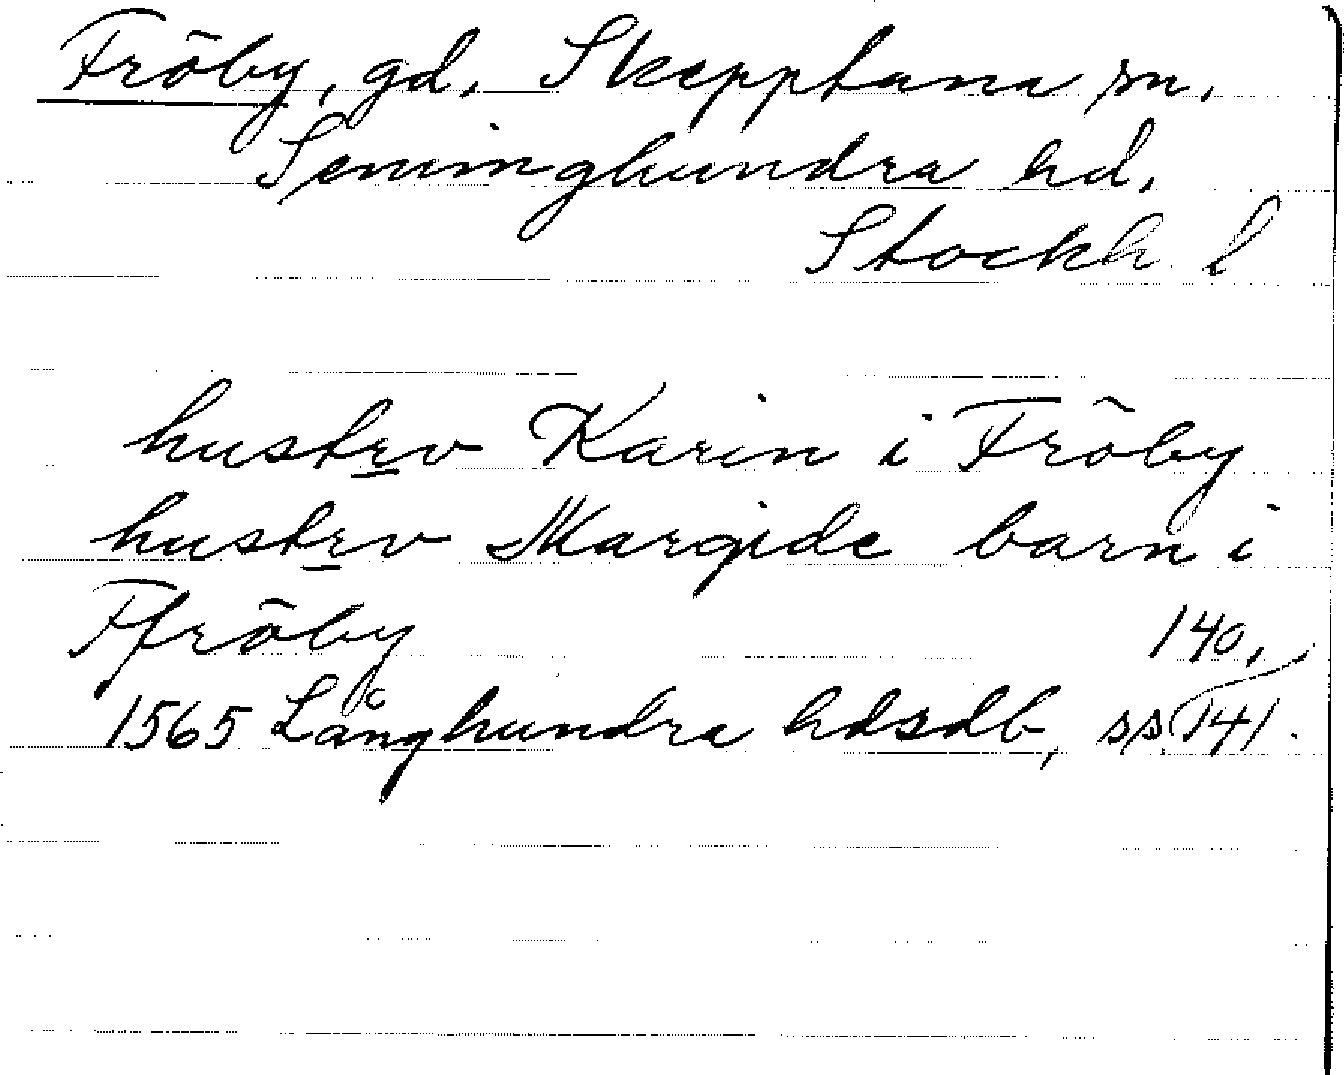 Fröby, gd, Skepptuna sn,
Seminghundra hd,
Stockh l
hustrv Karin i Fröby
hustrv Margide barn i
Ffröby 140,
1565 Långhundra hdsdb, ss 141.